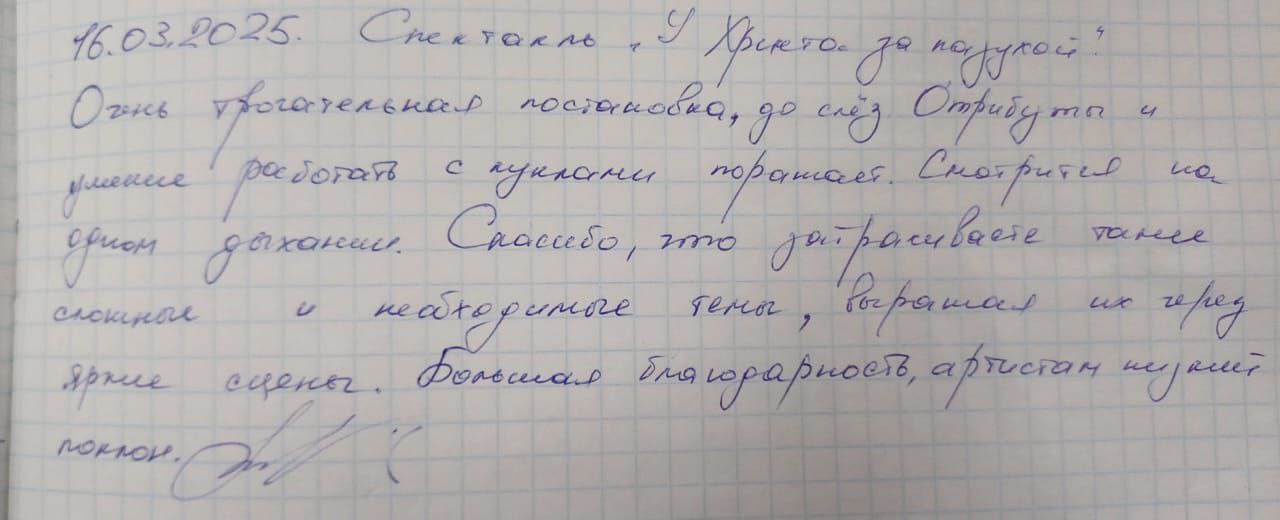 16.03.2025. Спектакль „У Христа за пазухой"
Очень трогательная постановка, до слёз. Отрибуты и
умение работать с куклами поражает. Смотрится на
одном дыхании. Спасибо, что затрагиваете такие
сложные и необходимые темы, выражая их через
яркие сцены. Большая благодарность, артистам низкий
поклон.